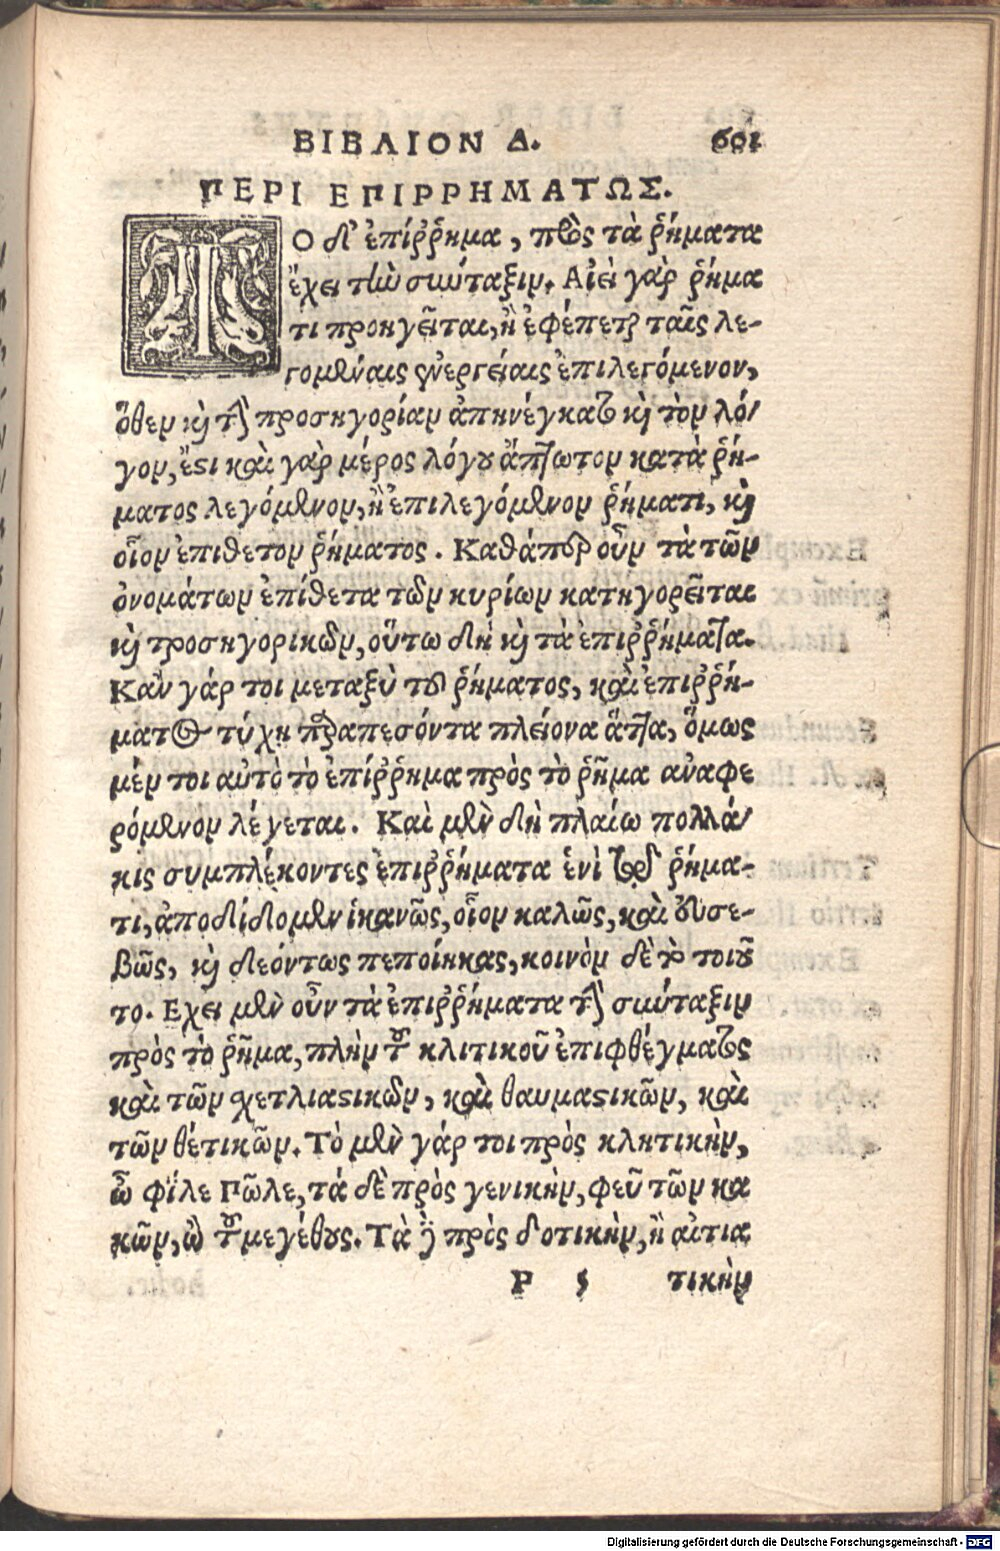 ΒΙΒΛΙΟΝ Δ. 601
ΠΕΡΙ ΕΠΙΡΡΗΜΑΤΩΣ.
ΤΟ δ' ἐπίῤῥημα, πρὸς τὰ ῥήματα
ἔχει τὴν σύνταξιν. Αἰεὶ γὰρ ῥήμα
τι προηγεῖται, ἢ ἐφέπεται ταῖς λε-
γομέναις ἐνεργείαις ἐπιλεγόμενον,
ὅθεν καὶ τὴν προσηγορίαν ἀπηνέγκατο καὶ τὸν λό/
γον, ἔστι καὶ γὰρ μέρος λόγου ἄπτωτον κατὰ ῥή-
ματος λεγόμενον, ἢ ἐπιλεγόμενον ῥήματι, καὶ
οἷον ἐπιθετον ῥήματος. Καθάπερ οὖν τὰ τῶν
ὀνομάτων ἐπίθετα τῶν κυρίων κατηγορεῖται
καὶ προσηγορικῶν, οὕτω δὴ καὶ τὰ ἐπιῤῥήματα.
Κἂν γάρ τοι μεταξὺ τοῦ ῥήματος, καὶ ἐπιῤῥή-
ματος τύχῃ παραπεσόντα πλείονα ἄττα, ὅμως
μέν τοι αὐτὸ τὸ ἐπίῤῥημα πρὸς τὸ ῥῆμα ἀναφε
ρόμενον λέγεται. Καὶ μὲν δὴ πλαίω πολλά/
κις συμπλέκοντες ἐπιῤῥήματα ἑνὶ τῷ ῥήμα-
τι, ἀποδίδομεν ἱκανῶς, οἷον καλῶς, καὶ εὐσε-
βῶς, καὶ δεόντως πεποίηκας, κοινὸν δὲ τὸ τοιοῦ
το. Εχει μὲν οὖν τὰ ἐπιῤῥήματα τὴν σύνταξιν
πρὸς τὸ ῥῆμα, πλὴν τοῦ κλιτικοῦ ἐπιφθέγματος
καὶ τῶν σχετλιαστικῶν, καὶ θαυμαστικῶν, καὶ
τῶν θέτικῶν. Τὸ μὲν γάρ τοι πρὸς κλητικὴν,
ὦ φίλε Πῶλε, τά δὲ πρὸς γενικὴν, φεῦ τῶν κα
κῶν, ὢ τοῦ μεγέθους. Τὰ δὲ πρὸς δοτικὴν, ἢ αἰτια
P 5 τικὴν
Digitalisierung gefördert durch die Deutsche Forschungsgemeinschaft - DFG